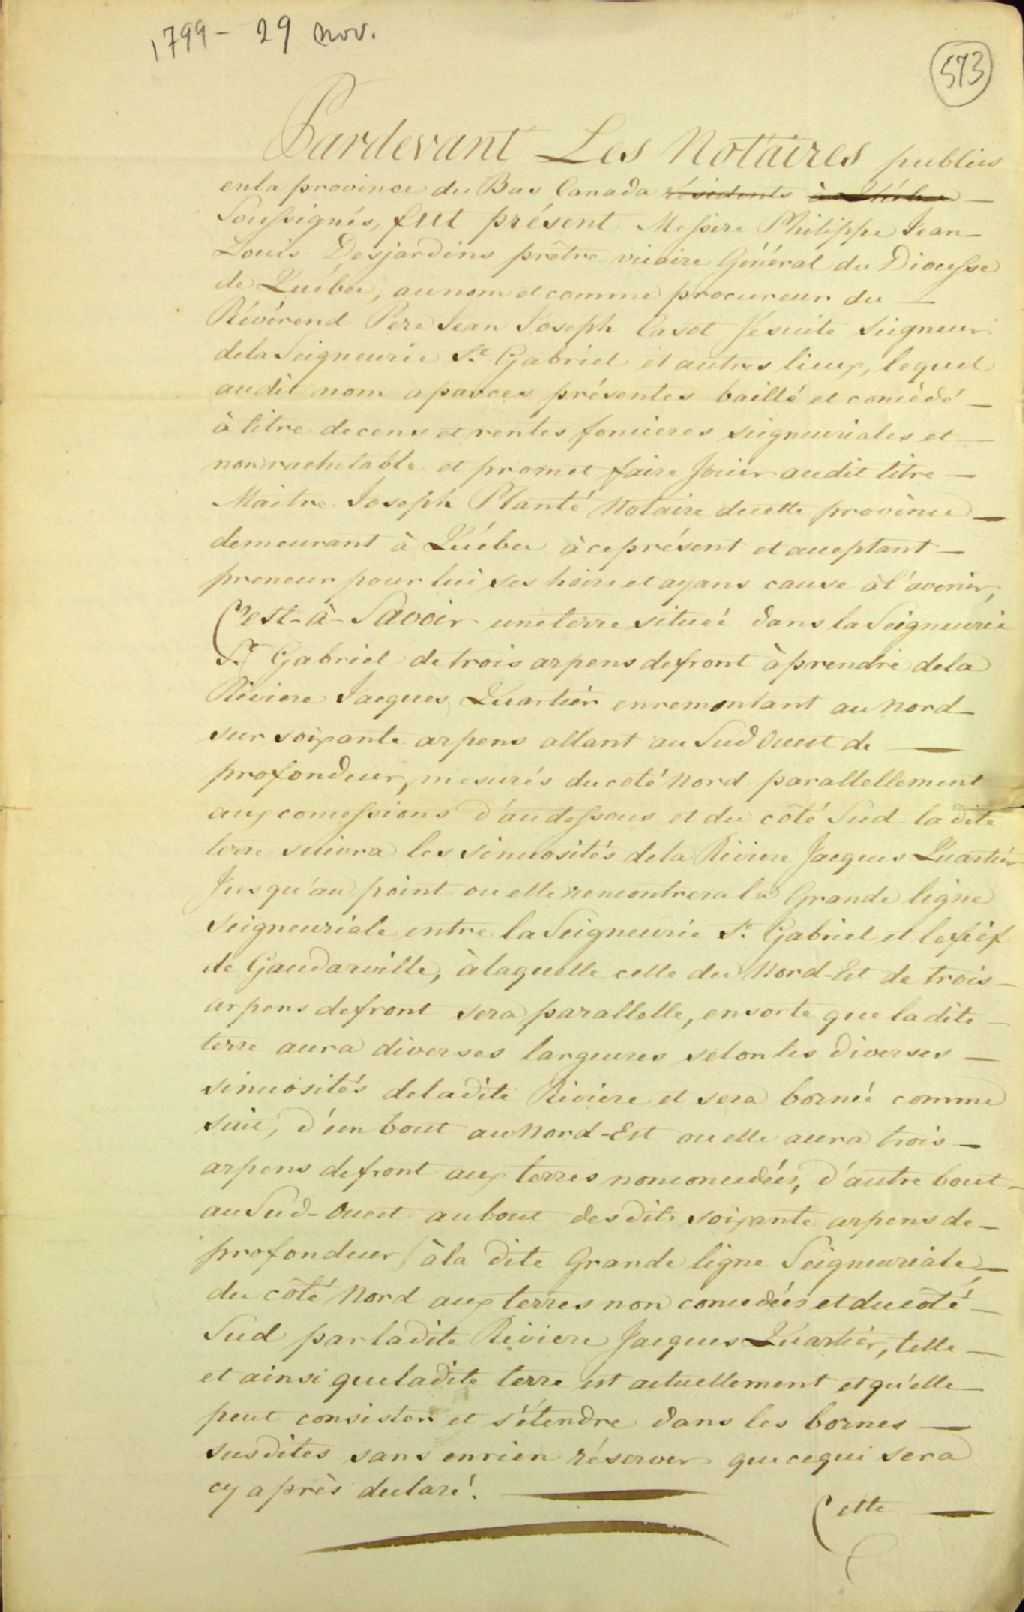 1799 - 29 nov.
573
Pardevant Les Notaires publics
en la province du Bas Canada résidents à Québec
Soussignés, fut présent Messire Philippe Jean
Louis Desjardins prêtre vicaire Général du Diocesse
de Québec, au nom et comme procureur du
Révérend Pere Jean Joseph Casot Jesuite Seigneur
de la Seigneurie St. Gabriel et autres lieux, lequel
audit nom a par ces présentes baillé et concédé
à titre de cens et rentes foncieres seigneuriales et
non rachetable et promet faire Jouir audit titre
Maitre Joseph Planté Notaire de cette province
demeurant à Québec à ce présent et acceptant
preneur pour lui ses hoirs et ayans cause à l'avenir,
C'est-à-Savoir une terre située dans la Seigneurie
St. Gabriel de trois arpens de front à prendre de la
Riviere Jacques Quartier en remontant au Nord
sur soixante arpens allant au Sud Ouest de
profondeur, mesurés du coté Nord parallellement
aux concessions d'audessous et du côté Sud la dite
terre suivra les sinuosités de la Riviere Jacques Quartier
Jusqu'au point ou elle rencontrera la Grande ligne
Seigneuriale entre la Seigneurie St. Gabriel et le fief
de Gaudarville, à laquelle celle du Nord-Est de trois
arpens de front sera parallelle, en sorte que la dite
terre aura diverses largeures selon les diverses
sinuosités de la dite Riviere et sera bornée comme
suit, d'un bout au Nord-Est ou elle aura trois
arpens de front aux terres non concedées, d'autre bout
au Sud-Ouest au bout des dits soixante arpens de
profondeur à la dite Grande ligne Seigneuriale
du côté Nord aux terres non concedées et du côté
Sud par la dite Riviere Jacques Quartier, telle
et ainsi que la dite terre est actuellement et qu'elle
peut consister et s'étendre dans les bornes
susdites sans en rien réserver que ce qui sera
cy après declaré.
Cette